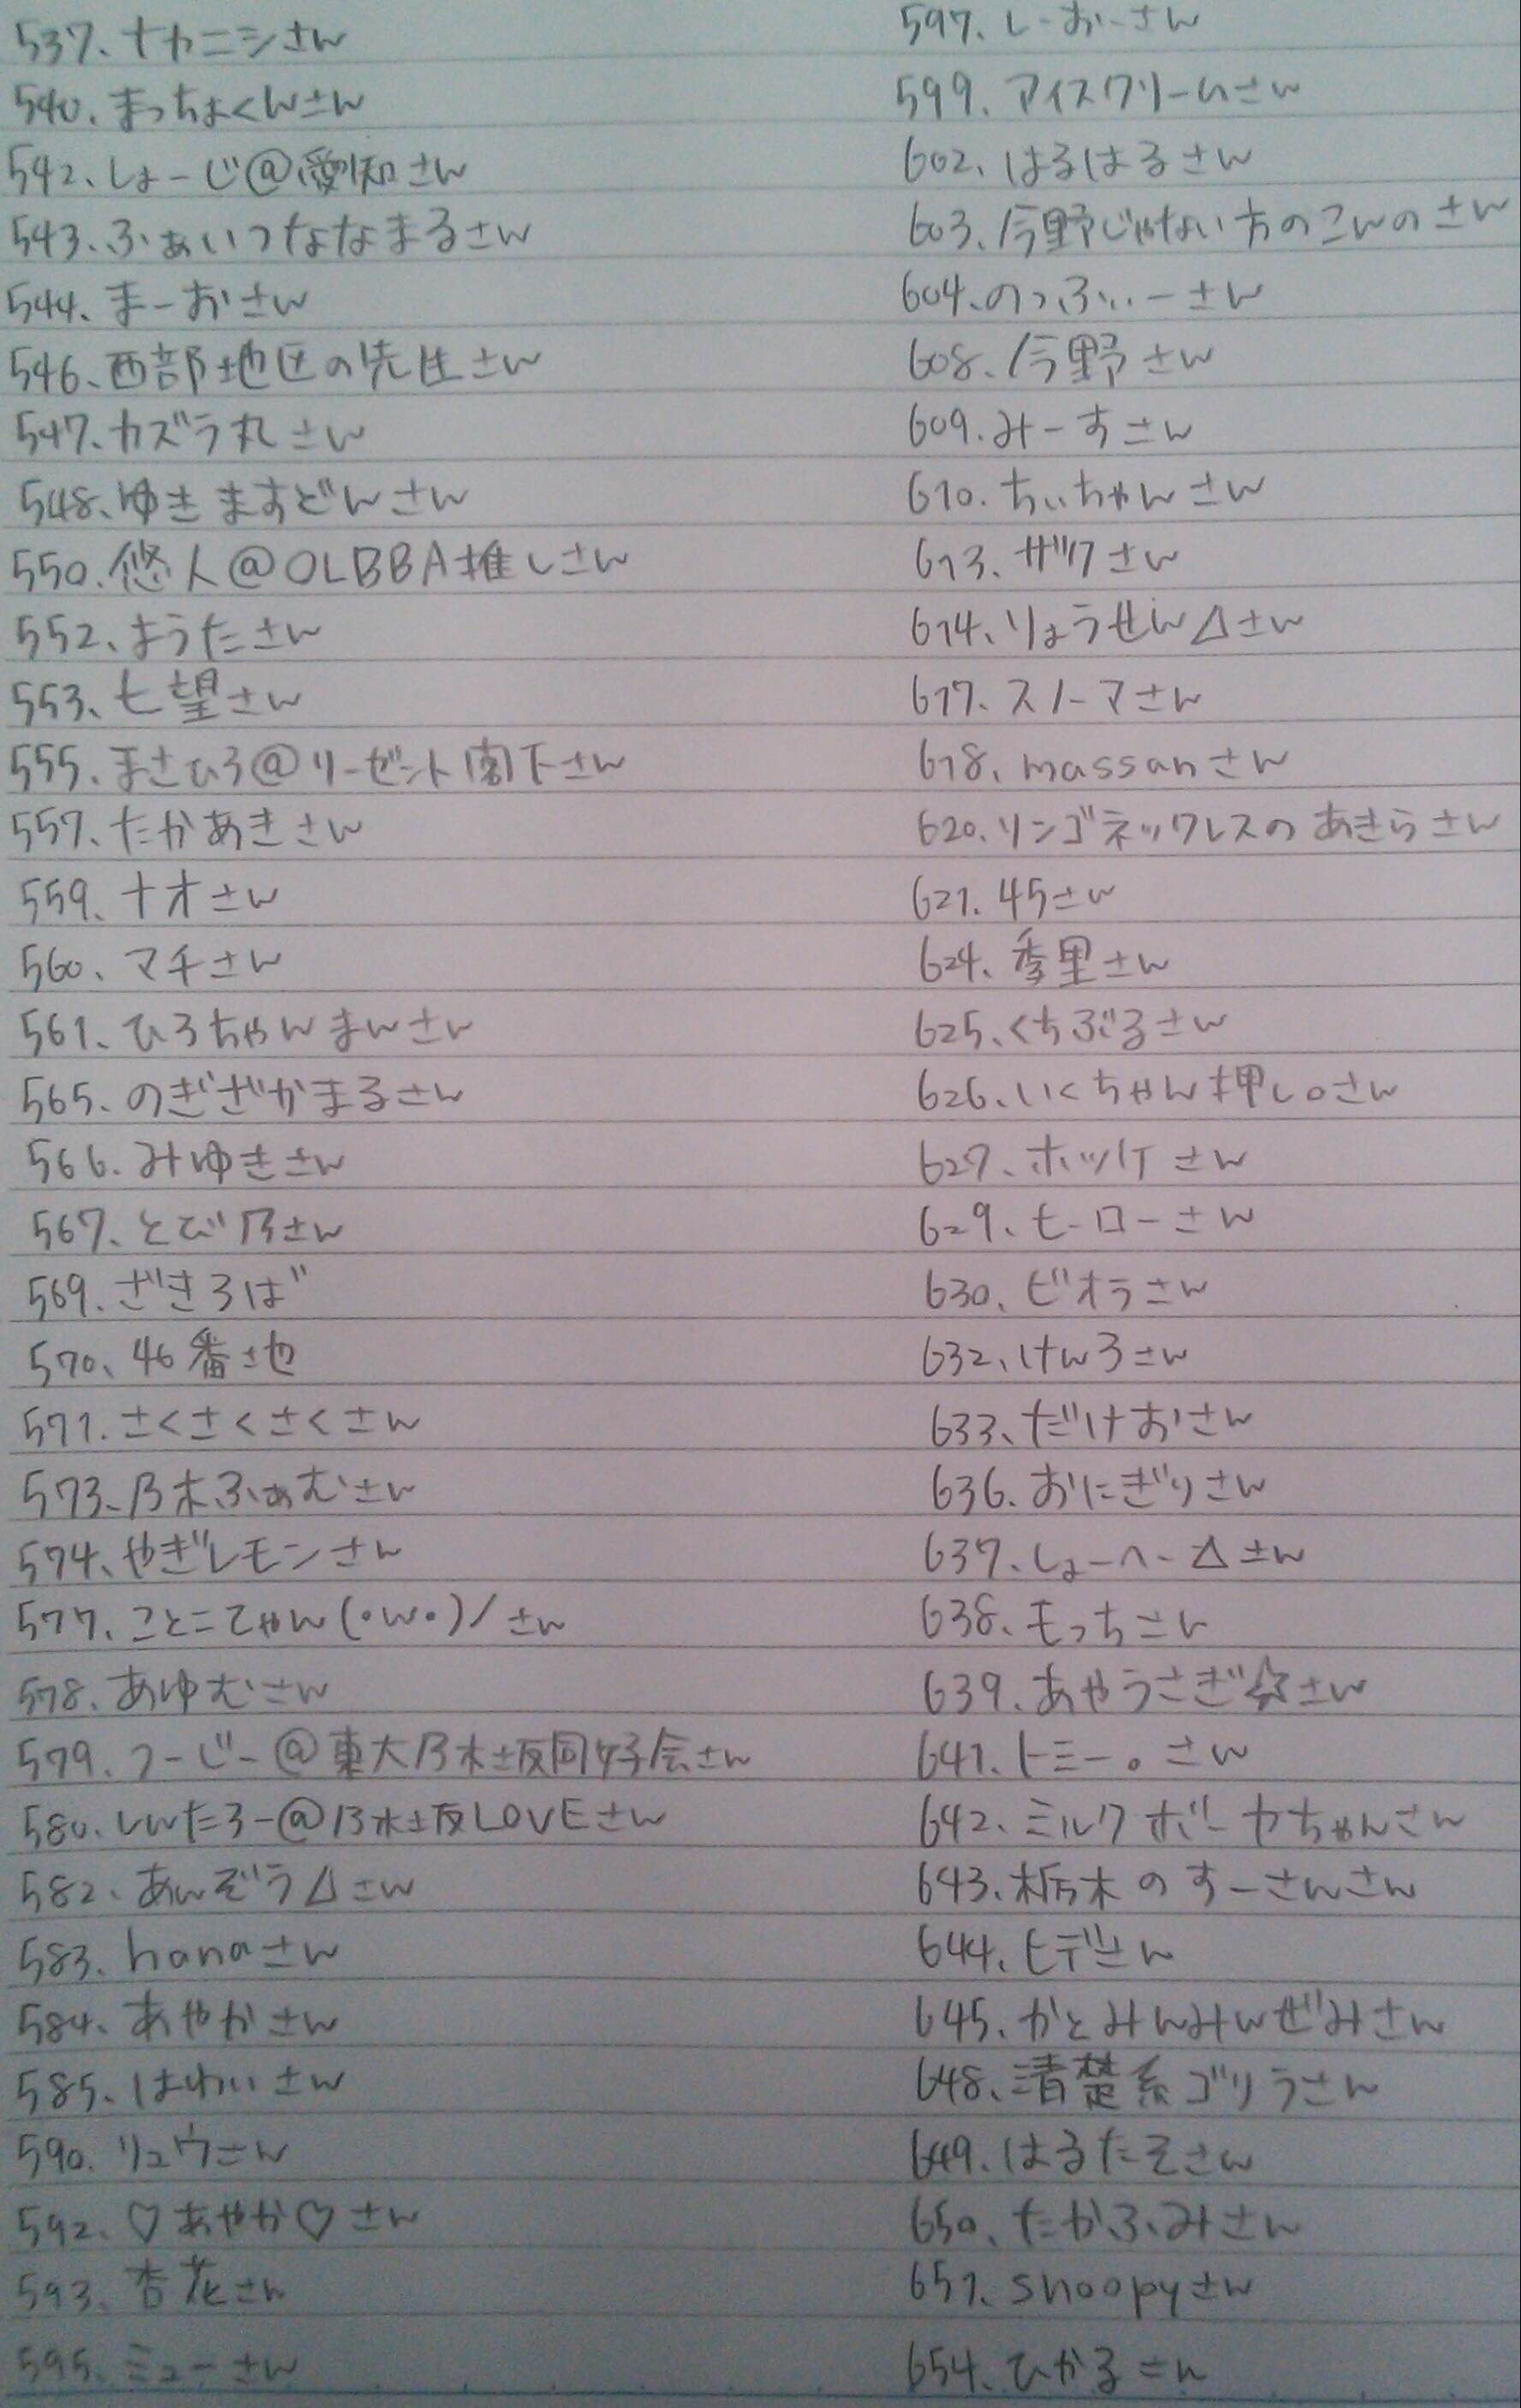 537、ナカニシさん
540、まっちょくんさん
542、しょーじ@愛知さん
543、ふぁいつななまるさん
544、まーおさん
546、西部地区の先生さん
547、カズラ丸さん
548、ゆきますどんさん
550、悠人@OLBBA推しさん
552、ようたさん
553、七望さん
555、まさひろ@リーゼント閣下さん
557、たかあきさん
559、ナオさん
560、マチさん
561、ひろちゃんまんさん
565、のぎざかまるさん
566、みゆきさん
567、とび乃さん
569、ざきろば
570、46番地
571、さくさくさくさん
573、乃木ふぁむさん
574、やぎレモンさん
577、ことこてゃん(・w・)/さん
578、あゆむさん
579、つーじー@東大乃木坂同好会さん
580、しんたろー@乃木坂LOVEさん
582、あんぞう△さん
583、hanaさん
584、あやかさん
585、はわいさん
590、リュウさん
592、♡あやか♡さん
593、杏花さん
595、ミューさん
597、しーおーさん
599、アイスクリームさん
602、はるはるさん
603、今野じゃない方のこんのさん
604、のっふぃーさん
608、今野さん
609、みーすさん
610、ちぃちゃんさん
613、ザツクさん
614、りょうせい△さん
617、スノーマさん
618、massanさん
620、リンゴネックレスのあきらさん
621、45さん
624、季里さん
625、くちぶるさん
626、いくちゃん押し。さん
627、ホッケさん
629、ヒーローさん
630、ビオラさん
632、けんろさん
633、だけおさん
636、おにぎりさん
637、しょーへー△さん
638、もっちさん
639、あやうさぎ☆さん
641、トミー。さん
642、ミルクボーヤちゃんさん
643、栃木のすーさんさん
644、ヒデさん
645、かとみんみんぜみさん
648、清楚系ゴリラさん
649、はるたそさん
650、たかふみさん
651、snoopyさん
654、ひかるさん